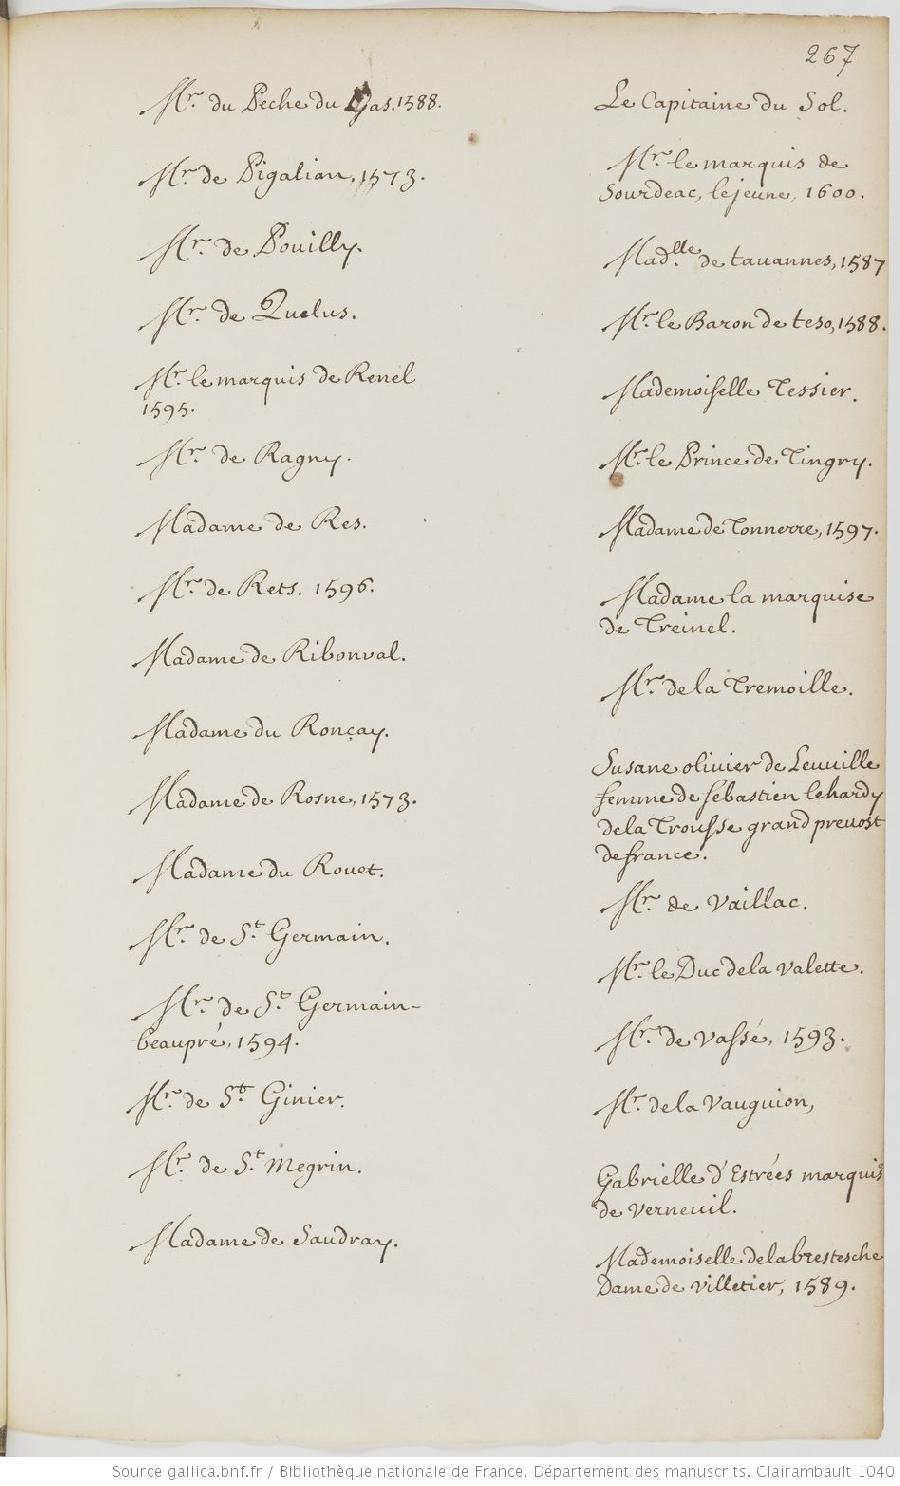 267
Mr. du Peche du Gas. 1588.
Mr. de Pigalian, 1573.
Mr. de Pouilly.
Mr. de Quelus.
Mr. le marquis de Renel
1595.
Mr. de Ragny.
Madame de Res.
Mr. de Rets. 1596.
Madame de Ribonval.
Madame du Ronçay.
Madame de Rosne, 1573.
Madame du Rouet.
Mr. de St. Germain.
Mr. de St. Germain-
beaupré, 1594.
Mr. de St. Ginier.
Mr. de St. Megrin.
Madame de Saudray.
Le Capitaine du Sol.
Mr. le marquis de
Sourdeac, le jeune, 1600.
Madlle. de tauannes, 1587
Mr. le Baron de teso, 1588.
Mademoiselle Tessier.
Mr. le Prince de Tingry.
Madame de Tonnerre, 1597.
Madame la marquise
de Treinel.
Mr. de la Tremoille.
Susane oliuier de Leuuille
femme de sebastien lehardy
de la Trousse grand preuost
de france.
Mr. de Vaillac.
Mr. le Duc de la Valette.
Mr. de Vassé, 1593.
Mr. de la Vauguion,
Gabrielle d'Estrées marquise
de Verneuil.
Mademoiselle de la brestesche
Dame de Villetier, 1589.
Source gallica.bnf.fr / Bibliothèque nationale de France. Département des manuscrits. Clairambault 1040